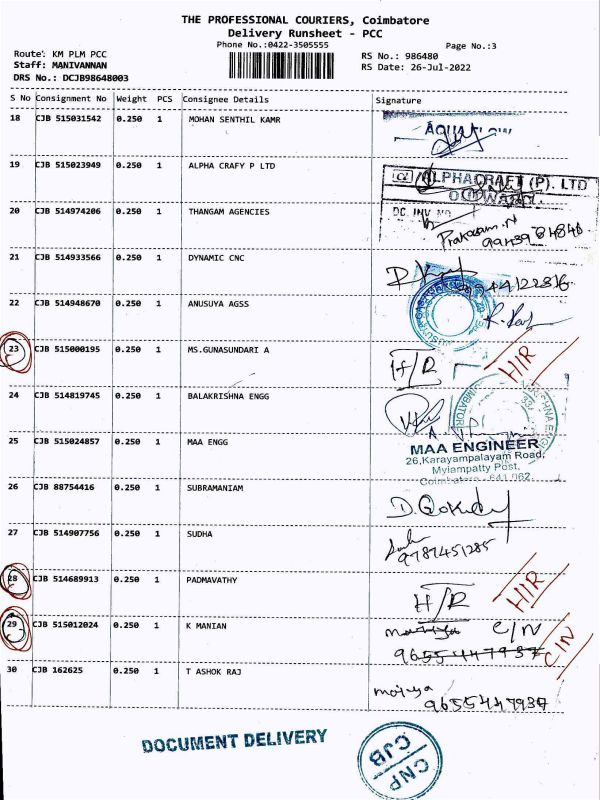 THE PROFESSIONAL COURIERS, Coimbatore
Delivery Runsheet - PCC
Phone No.:0422-3505555
Page No.:3
Route: KM PLM PCC
RS No.: 986480
Staff: MANIVANNAN
RS Date: 26-Jul-2022
DRS No.: DCJB98648003
S No Consignment No Weight PCS Consignee Details Signature
18 CJB 515031542 0.250 1 MOHAN SENTHIL KAMR
19 CJB 515023949 0.250 1 ALPHA CRAFY P LTD
ALPHACRAFT (P). LTD
20 CJB 514974206 0.250 1 THANGAM AGENCIES
DC. INV NO
Prakasam.N
9943984840
21 CJB 514933566 0.250 1 DYNAMIC CNC
9944122816
22 CJB 514948670 0.250 1 ANUSUYA AGSS
23 CJB 515000195 0.250 1 MS.GUNASUNDARI A
H/R H/R
24 CJB 514819745 0.250 1 BALAKRISHNA ENGG
25 CJB 515024857 0.250 1 MAA ENGG
MAA ENGINEER
26,Karayampalayam Road,
Mylampatty Post,
Coimbatore - 641 062.
26 CJB 88754416 0.250 1 SUBRAMANIAM
27 CJB 514907756 0.250 1 SUDHA
9787451285
28 CJB 514689913 0.250 1 PADMAVATHY
H/R H/R
29 CJB 515012024 0.250 1 K MANIAN
C/N
9655447937 C/N
30 CJB 162625 0.250 1 T ASHOK RAJ
9655447937
DOCUMENT DELIVERY
CNP
CJB